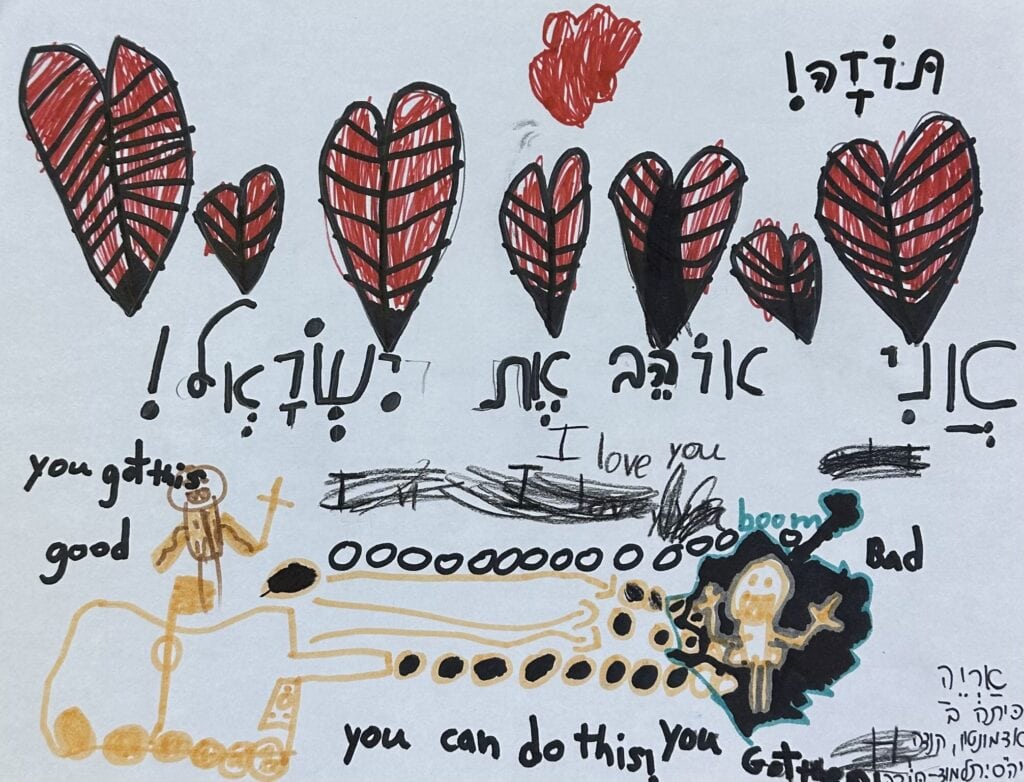 תּוֹדָה!
אֲנִי אוֹהֵב אֶת יִשְׂרָאֵל!
I love you
you got this
good
boom
Bad
you can do this! you Got them
אַרְיֵה
כיתה ב
אדמונטון, קנדה
תלמוד-תורה